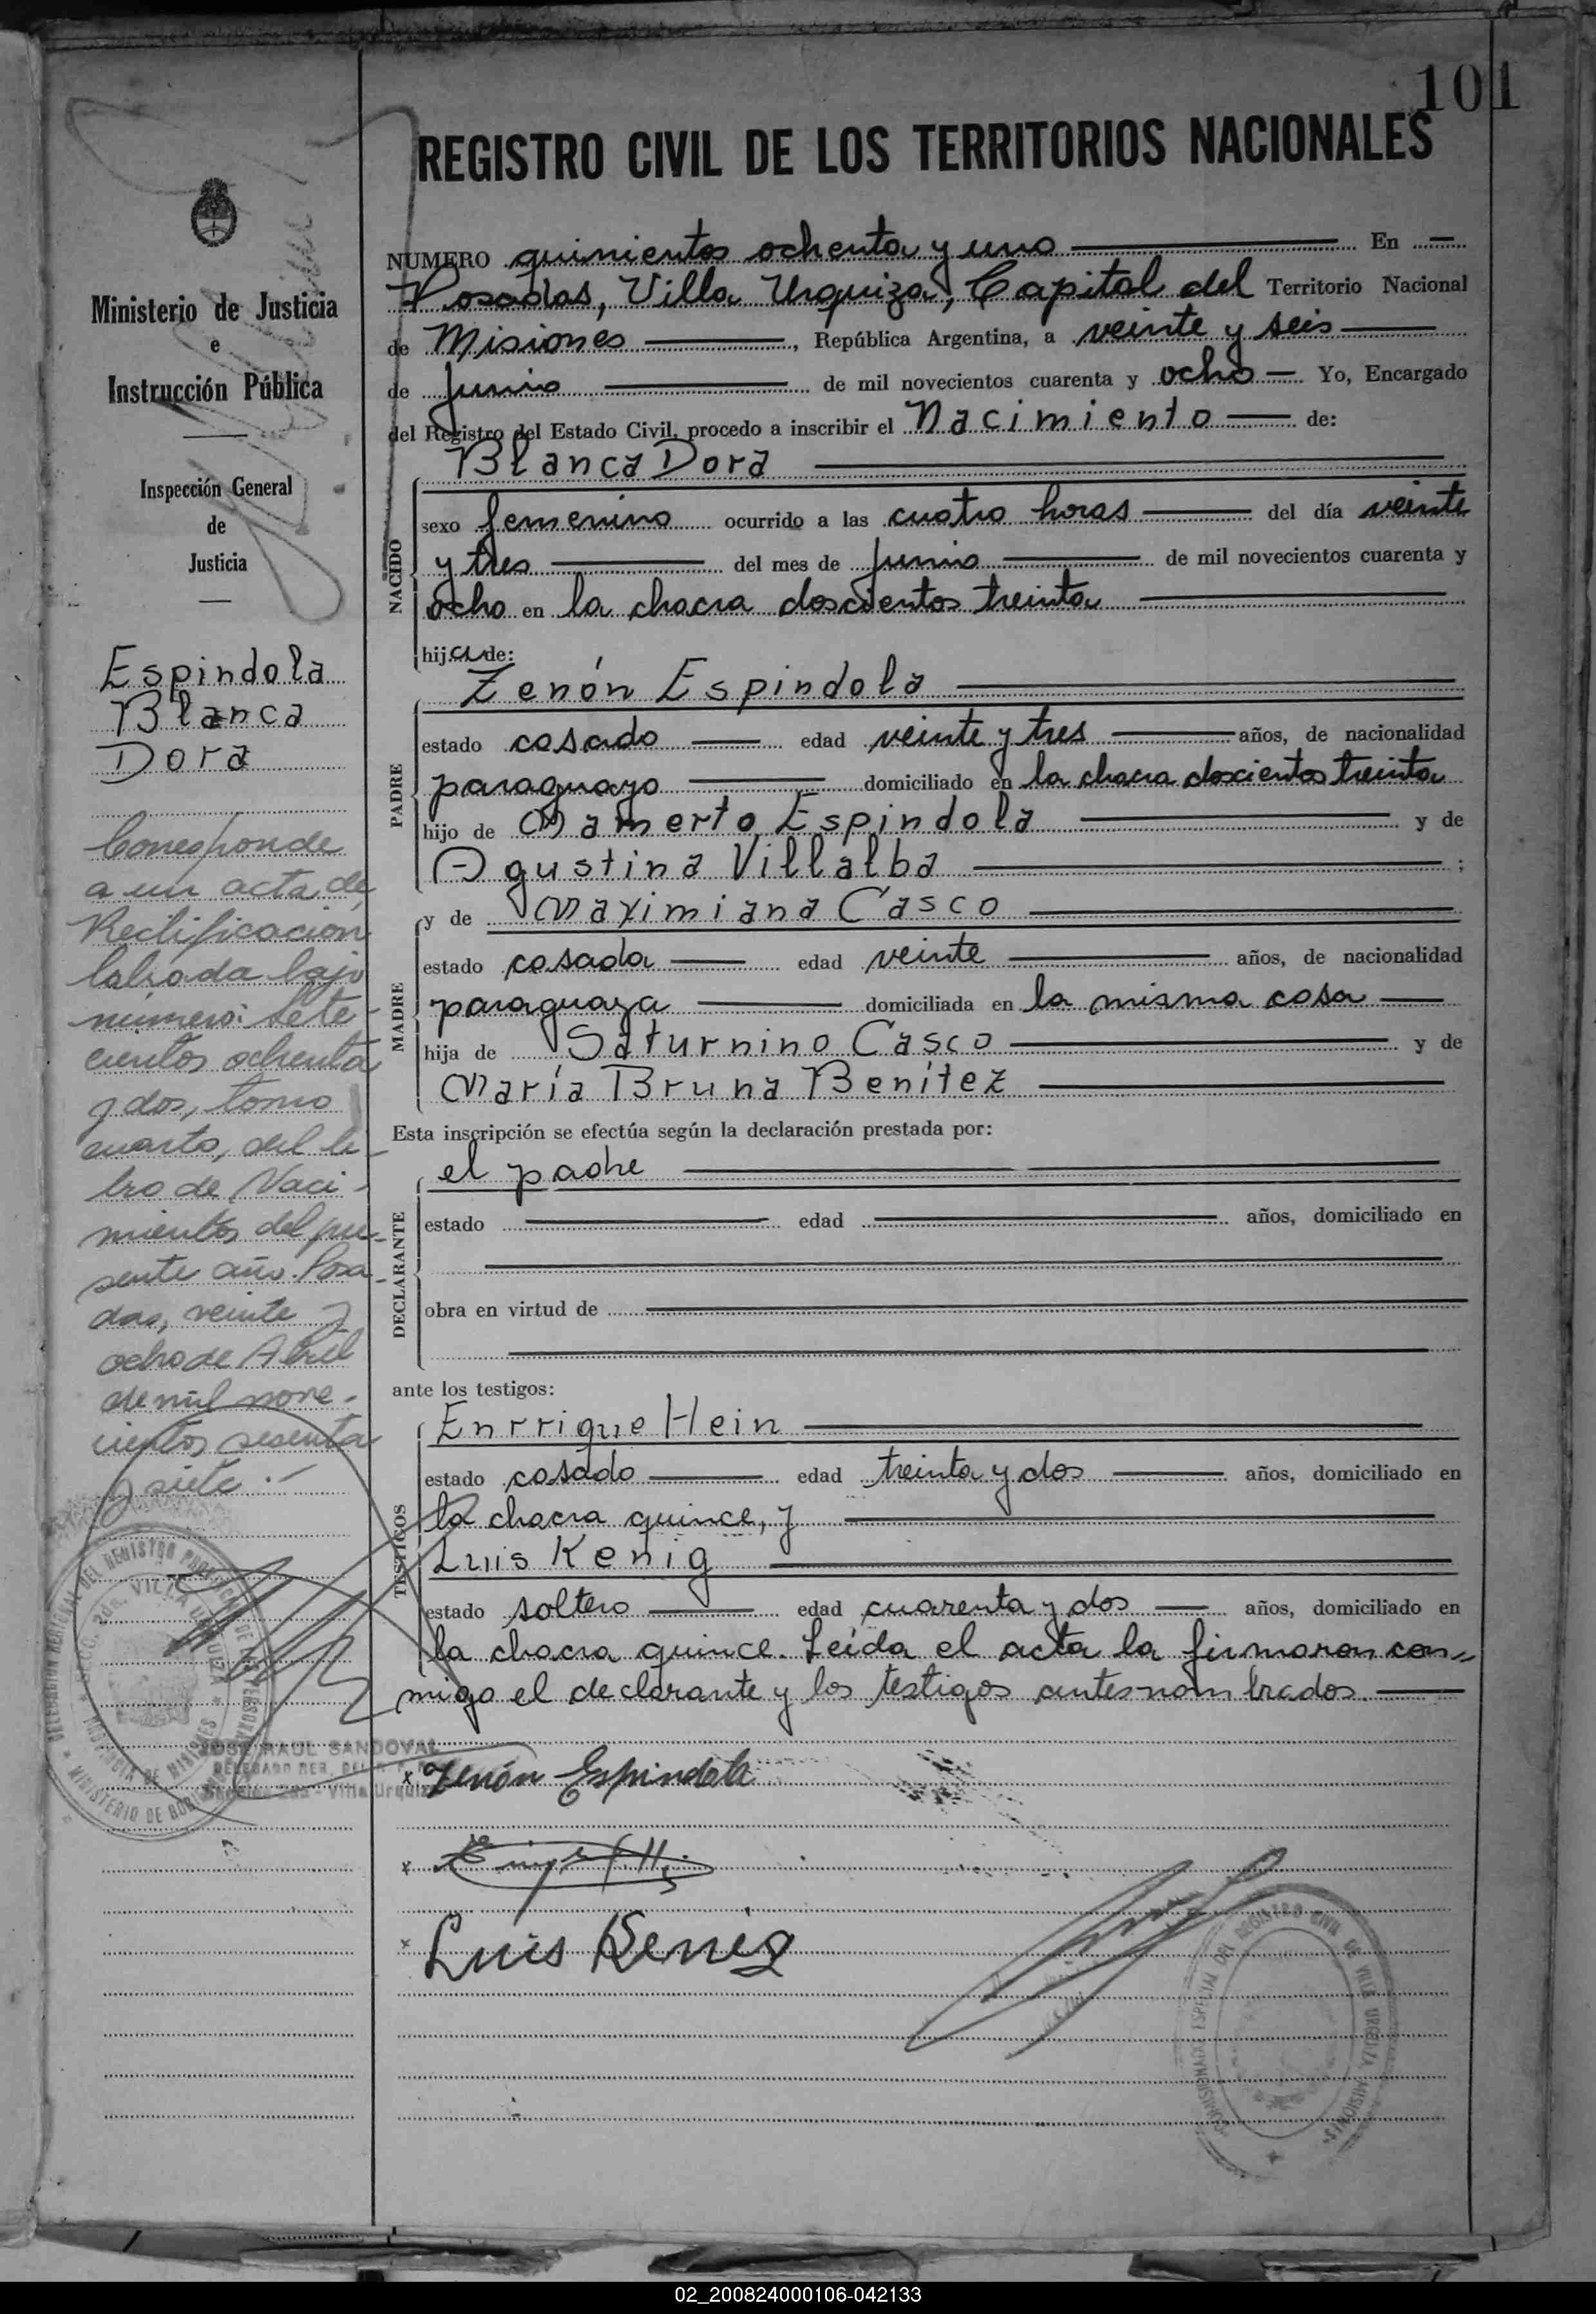 101
REGISTRO CIVIL DE LOS TERRITORIOS NACIONALES
Ministerio de Justicia
e
Instrucción Pública
Inspección General
de
Justicia
Espindola
Blanca
Dora
Corresponde
a un acta de
Rectificación
labrada bajo
número: sete-
cientos ochenta
y dos, tomo
cuarto, del li-
bro de Naci-
mientos del pre-
sente año. Posa-
das, veinte y
ocho de Abril
de mil nove-
cientos sesenta
y siete.-
DELEGACION REGIONAL DEL REGISTRO PROVINCIAL DE LAS PERSONAS
SECC. 2da. VILLA URQUIZA
PROVINCIA DE MISIONES
MINISTERIO DE GOBIERNO
JOSE RAUL SANDOVAL
Sección 2da - Villa Urquiza
NUMERO quinientos ochenta y uno En
Posadas, Villa Urquiza, Capital del Territorio Nacional
de Misiones, República Argentina, a veinte y seis
de Junio de mil novecientos cuarenta y ocho Yo, Encargado
del Registro del Estado Civil, procedo a inscribir el Nacimiento de:
Blanca Dora
NACIDO
sexo femenino ocurrido a las cuatro horas del día veinte
y tres del mes de Junio de mil novecientos cuarenta y
ocho en la chacra doscientos treinta
hija de:
Zenón Espindola
PADRE
estado casado edad veinte y tres años, de nacionalidad
paraguayo domiciliado en la chacra doscientos treinta
hijo de Mamerto Espindola y de
Agustina Villalba ;
y de Maximiana Casco
MADRE
estado casada edad veinte años, de nacionalidad
paraguaya domiciliada en la misma casa
hija de Saturnino Casco y de
María Bruna Benítez
Esta inscripción se efectúa según la declaración prestada por:
el padre
DECLARANTE
estado edad años, domiciliado en
obra en virtud de
ante los testigos:
Enrrique Hein
TESTIGOS
estado casado edad treinta y dos años, domiciliado en
la chacra quince, y
Luis Kenig
estado soltero edad cuarenta y dos años, domiciliado en
la chacra quince. Leída el acta la firmaron con„
migo el declarante y los testigos antesnombrados.
x Zenón Espindola
x
x Luis Kenig
COMISIONADO ESPECIAL DEL REGISTRO CIVIL DE VILLA URQUIZA MISIONES
02_200824000106-042133